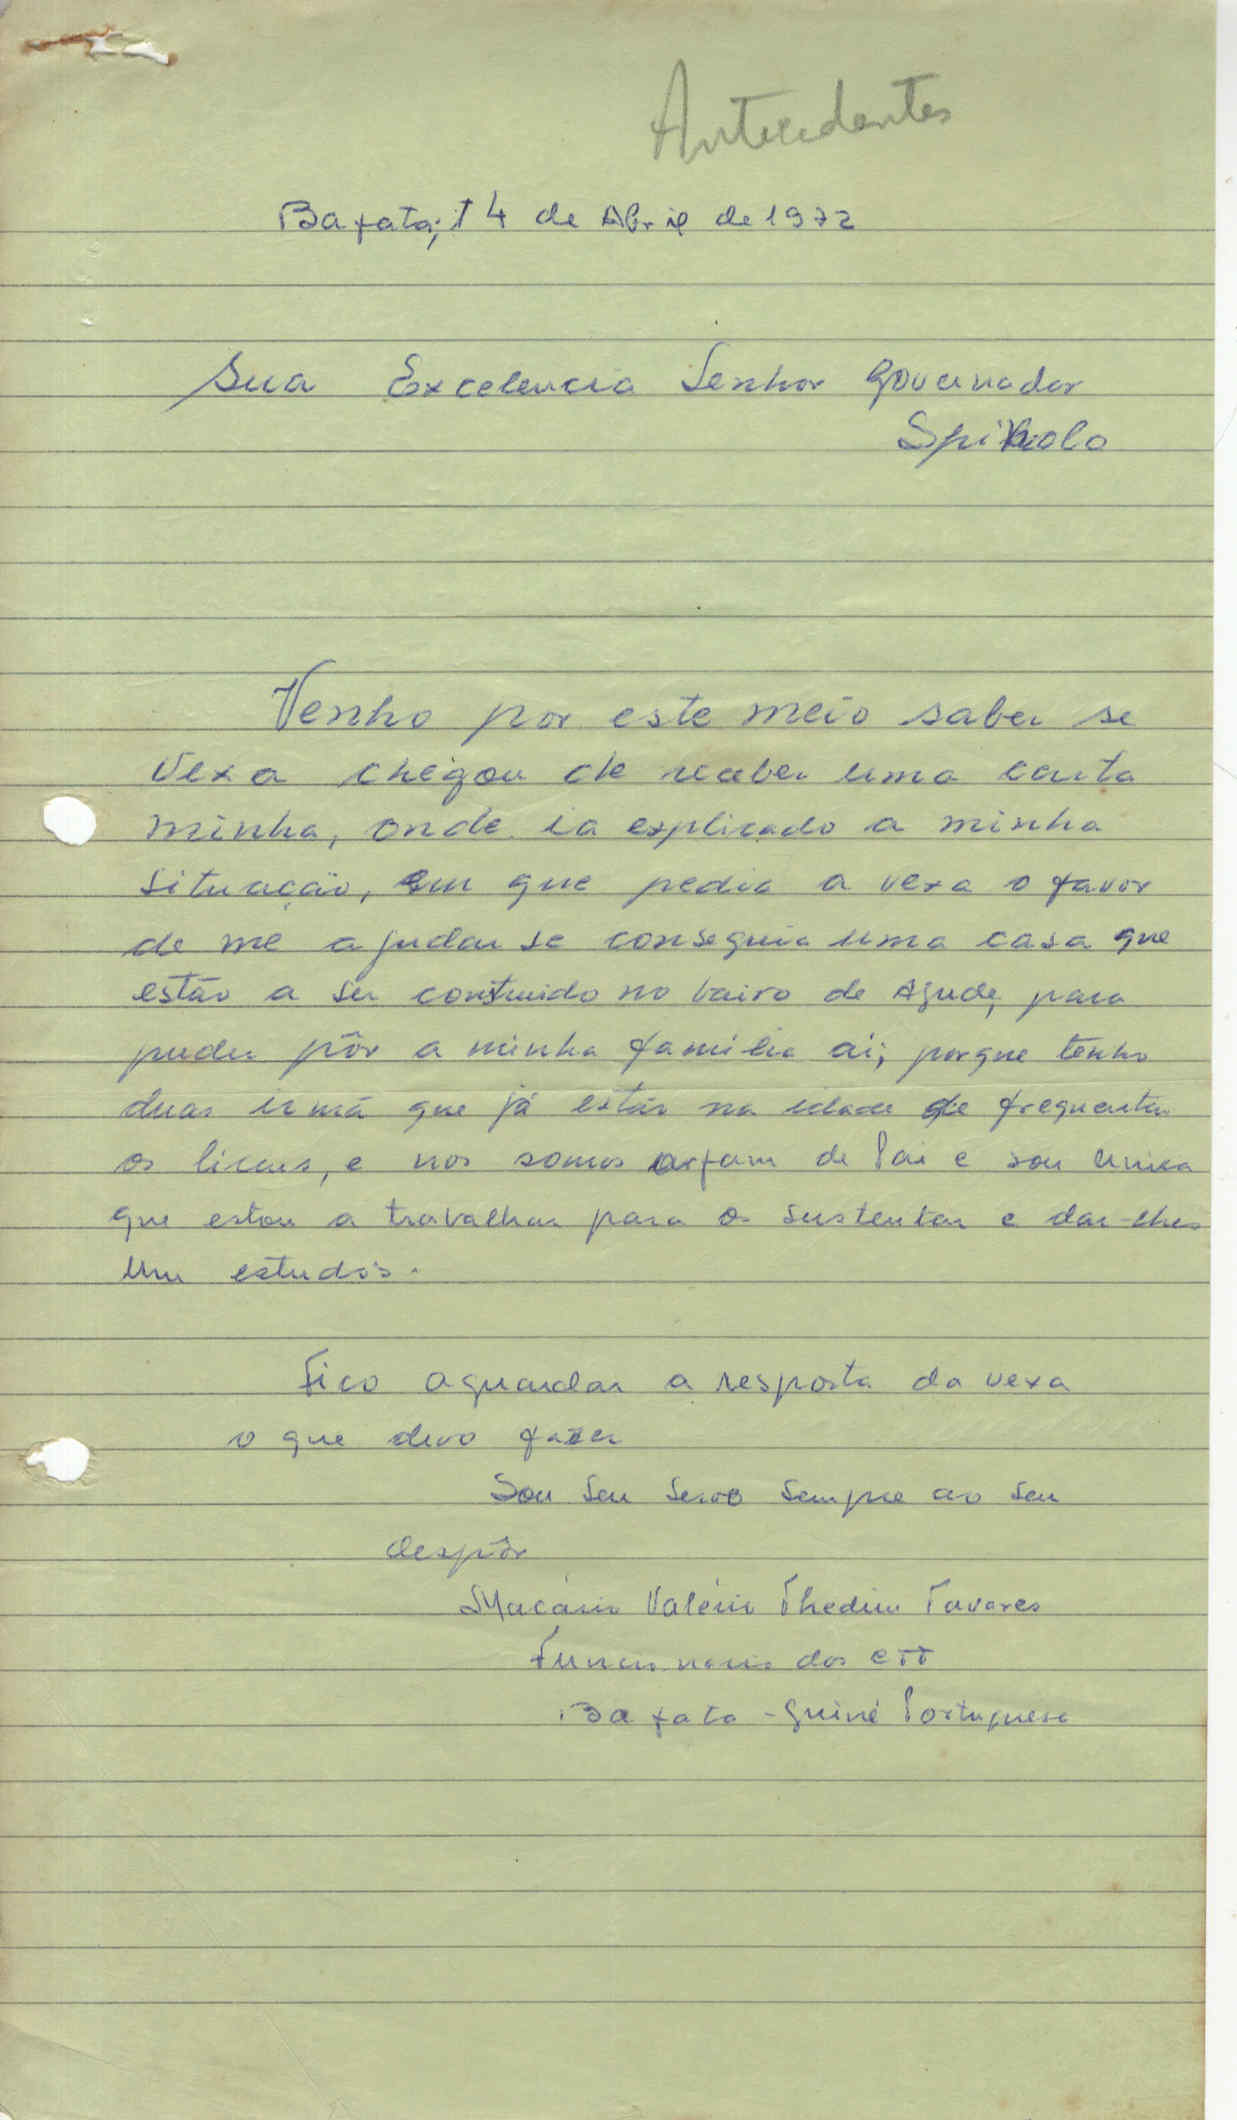 Antecedentes
Bafata; 14 de Abril de 1972
Sua Excelencia Senhor Governador
Spinolo
Venho por este meio saber se
Vexa chegou de receber uma carta
minha, onde ia explicado a minha
situação, em que pedia a vexa o favor
de me ajudar se conseguia uma casa que
estão a ser contruido no bairo de Ajuda, para
puder pôr a minha familia ai; porque tenho
duas irmã que já estão na idade de frequentar
os liceus, e nos somos orfam de Pai e sou unica
que estou a trabalhar para os sustentar e dar-lhes
um estudos.
Fico aguardar a resposta da vexa
o que devo fazer
Sou seu servo sempre ao seu
despôr
Macário Valério Tavares
Funcionario dos CTT
Bafata - Guiné Portuguesa